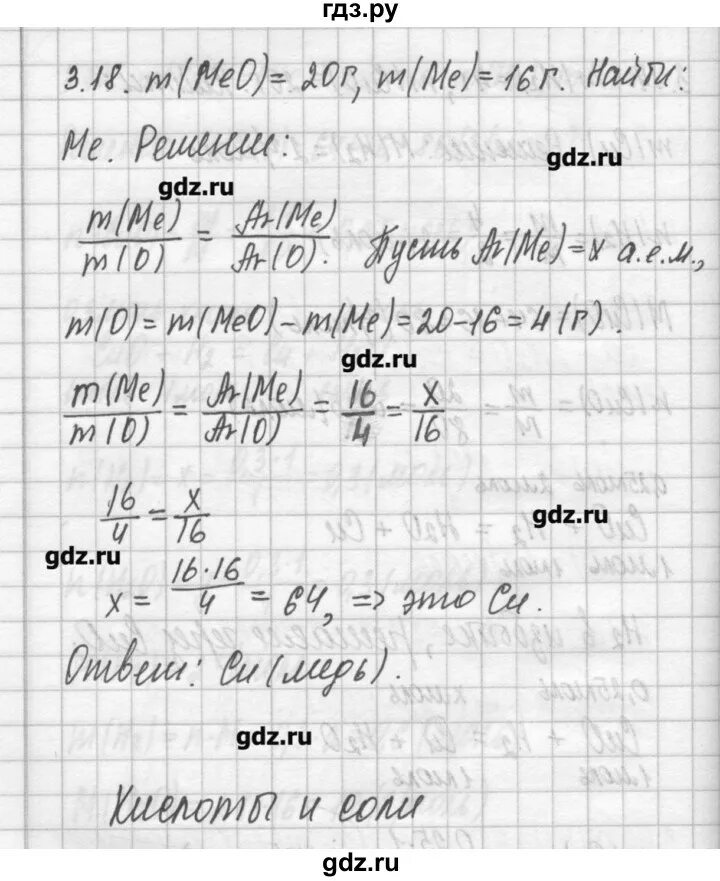 гдз.ру
3.18. m(MeO) = 20г, m(Me) = 16г. Найти:
Me. Решение:
gdz.ru
gdz.ru
m(Me)/m(O) = Ar(Me)/Ar(O). Пусть Ar(Me) = x а.е.м.,
m(O) = m(MeO) - m(Me) = 20-16 = 4(г).
gdz.ru
m(Me)/m(O) = Ar(Me)/Ar(O) = 16/4 = x/16
16/4 = x/16
gdz.ru
gdz.ru
x = 16·16/4 = 64, => это Cu.
Ответ: Cu (медь).
gdz.ru
Кислоты и соли
gdz.ru